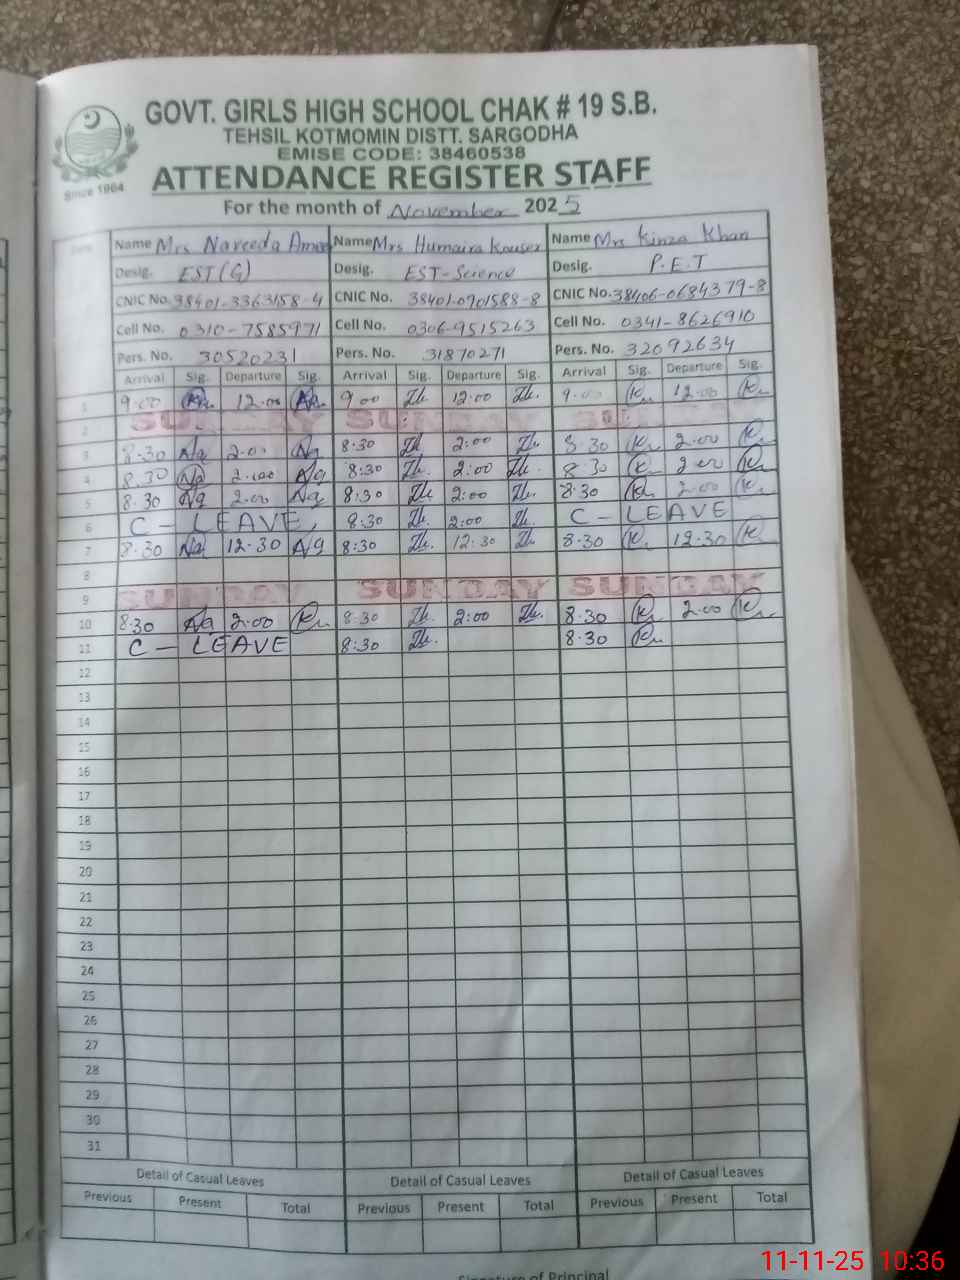 GOVT. GIRLS HIGH SCHOOL CHAK # 19 S.B.
TEHSIL KOTMOMIN DISTT. SARGODHA
EMISE CODE: 38460538
Since 1964
ATTENDANCE REGISTER STAFF
For the month of November 2025
Name Mrs Naveeda Name Mrs Humaira Kouser Name Mrs Kinza Khan
Desig. EST(G) Desig. EST-Science Desig. P.E.T
CNIC No. 38401-3363158-4 CNIC No. 38401-0901588-8 CNIC No. 38406-0684379-8
Cell No. 0310-7585971 Cell No. 0306-9515263 Cell No. 0341-8626910
Pers. No. 30520231 Pers. No. 31870271 Pers. No. 32092634
Arrival Sig. Departure Sig. Arrival Sig. Departure Sig. Arrival Sig. Departure Sig.
1 9.00 12.00 9 00 12.00 9.00 12.00
2 SUNDAY SUNDAY SUNDAY
3 8.30 Nq 2.00 Nq 8.30 2:00 8 30 2.00
4 8.30 Nq 2.00 Nq 8:30 2:00 8 30 2 00
5 8.30 Nq 2.00 Nq 8:30 2:00 8.30 2.00
6 C - LEAVE 8:30 2:00 C - LEAVE
7 8.30 Nq 12.30 Nq 8:30 12:30 8.30 12.30
8
9 SUNDAY SUNDAY SUNDAY
10 8.30 Nq 2.00 8.30 2:00 8.30 2.00
11 C - LEAVE 8:30 8.30
12
13
14
15
16
17
18
19
20
21
22
23
24
25
26
27
28
29
30
31
Detail of Casual Leaves Detail of Casual Leaves Detail of Casual Leaves
Previous Present Total Previous Present Total Previous Present Total
Signature of Principal
11-11-25 10:36